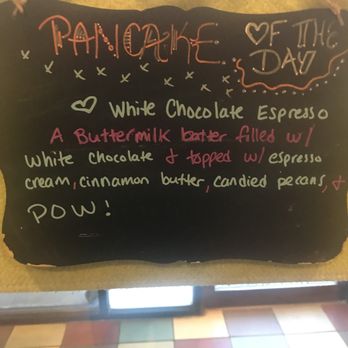 PANCAKE OF THE DAY
White Chocolate Espresso
A Buttermilk batter filled w/
white chocolate & topped w/ espresso
cream, cinnamon butter, candied pecans, &
POW!